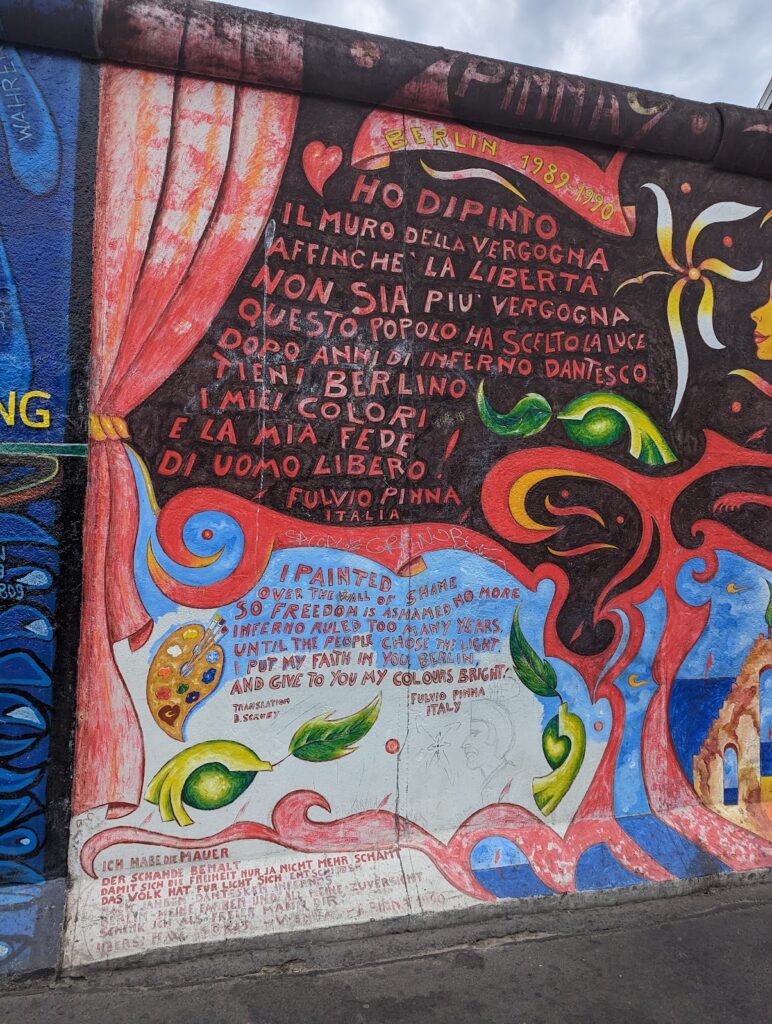 PINNA
BERLIN 1989-1990
HO DIPINTO
IL MURO DELLA VERGOGNA
AFFINCHE' LA LIBERTA'
NON SIA PIU' VERGOGNA
QUESTO POPOLO HA SCELTO LA LUCE
DOPO ANNI DI INFERNO DANTESCO
TIENI BERLINO
I MIEI COLORI
E LA MIA FEDE
DI UOMO LIBERO!
FULVIO PINNA
ITALIA
I PAINTED
OVER THE WALL OF SHAME
SO FREEDOM IS ASHAMED NO MORE
INFERNO RULED TOO MANY YEARS,
UNTIL THE PEOPLE CHOSE THE LIGHT.
I PUT MY FAITH IN YOU, BERLIN,
AND GIVE TO YOU MY COLOURS BRIGHT!
TRANSLATION
FULVIO PINNA
ITALY
ICH HABE DIE MAUER
DER SCHANDE BEMALT
DAMIT SICH DIE FREIHEIT NUR JA NICHT MEHR SCHÄMT
DAS VOLK HAT FÜR LICHT SICH ENTSCHIEDEN
BERLIN MEINE FARBEN UND MEINE ZUVERSICHT
SCHENK ICH ALS FREIER MANN DIR
WAHRE
NG